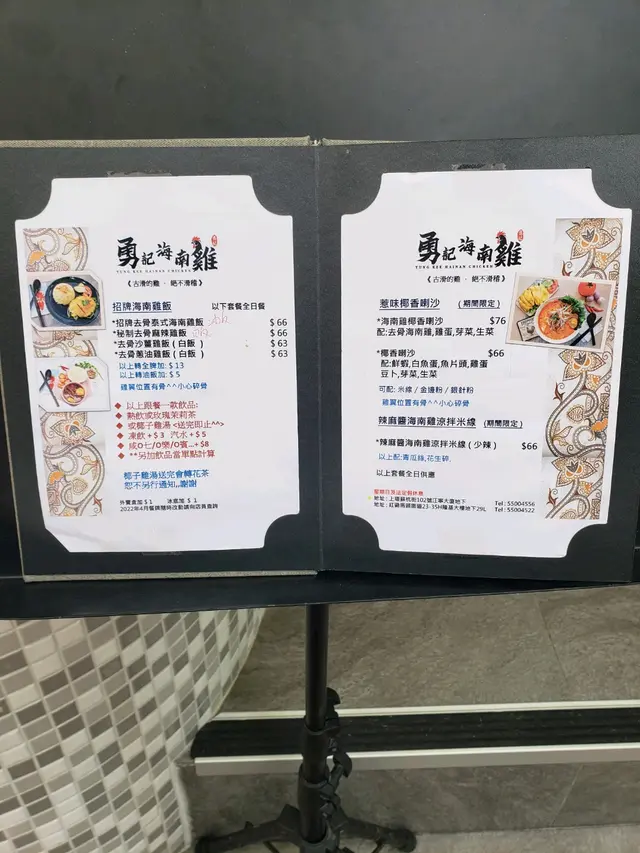 勇記海南雞
YUNG KEE HAINAN CHICKEN
《古滑的雞 · 絕不滑稽》
招牌海南雞飯 以下套餐全日餐
*招牌去骨泰式海南雞飯 $ 66
*秘制去骨麻辣雞飯 $ 66
*去骨沙薑雞飯 ( 白飯 ) $ 63
*去骨蔥油雞飯 ( 白飯 ) $ 63
以上轉全髀加: $ 13
以上轉油飯加: $ 5
雞翼位置有骨^^小心碎骨
以上跟餐一款飲品:
熱飲或玫瑰茉莉茶
或椰子雞湯 <送完即止^^>
凍飲+$ 3 汽水+$ 5
咸O七/O樂/O賓...+$8
**另加飲品當單點計算
椰子雞湯送完會轉花茶
恕不另行通知,,謝謝
外賣盒加 $ 1 冰底加 $ 1
2022年4月餐牌隨時改動請向店員查詢
勇記海南雞
YUNG KEE HAINAN CHICKEN
《古滑的雞 · 絕不滑稽》
惹味椰香喇沙 (期間限定)
*海南雞椰香喇沙 $76
配:去骨海南雞,雞蛋,芽菜,生菜
*椰香喇沙 $66
配:鮮蝦,白魚蛋,魚片頭,雞蛋
豆卜,芽菜,生菜
可配: 米線 / 金邊粉 / 銀針粉
雞翼位置有骨^^小心碎骨
辣麻醬海南雞涼拌米線 (期間限定)
*辣麻醬海南雞涼拌米線 ( 少辣 ) $66
以上配:青瓜絲,花生碎.
以上套餐全日供應
地址 : 上環蘇杭街102號江寧大廈地下 Tel : 55004556
地址 : 紅磡馬頭圍道23-35H隆基大樓地下29L Tel : 55004522